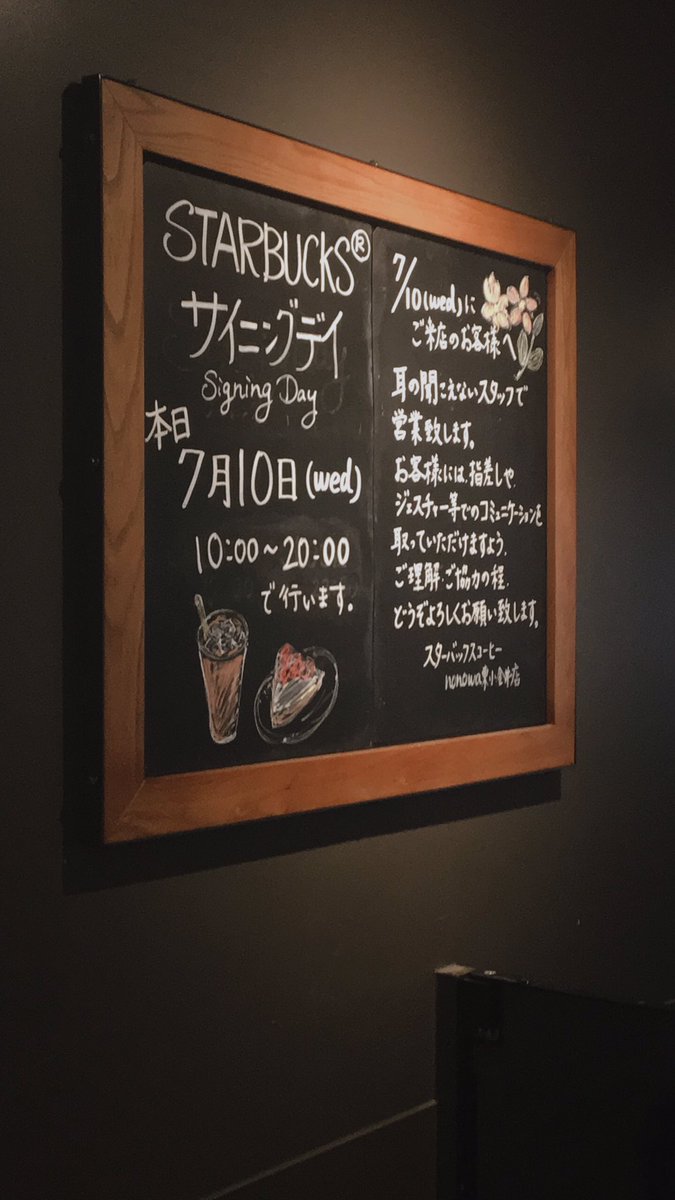 STARBUCKS®
サイニングデイ
Signing Day
本日
7月10日(wed)
10:00~20:00
で行います。
7/10(wed)に
ご来店のお客様へ
耳の聞こえないスタッフで
営業致します。
お客様には、指差しや、
ジェスチャー等でのコミュニケーションを
取っていただけますよう、
ご理解・ご協力の程、
どうぞよろしくお願い致します。
スターバックスコーヒー
nonowa東小金井店